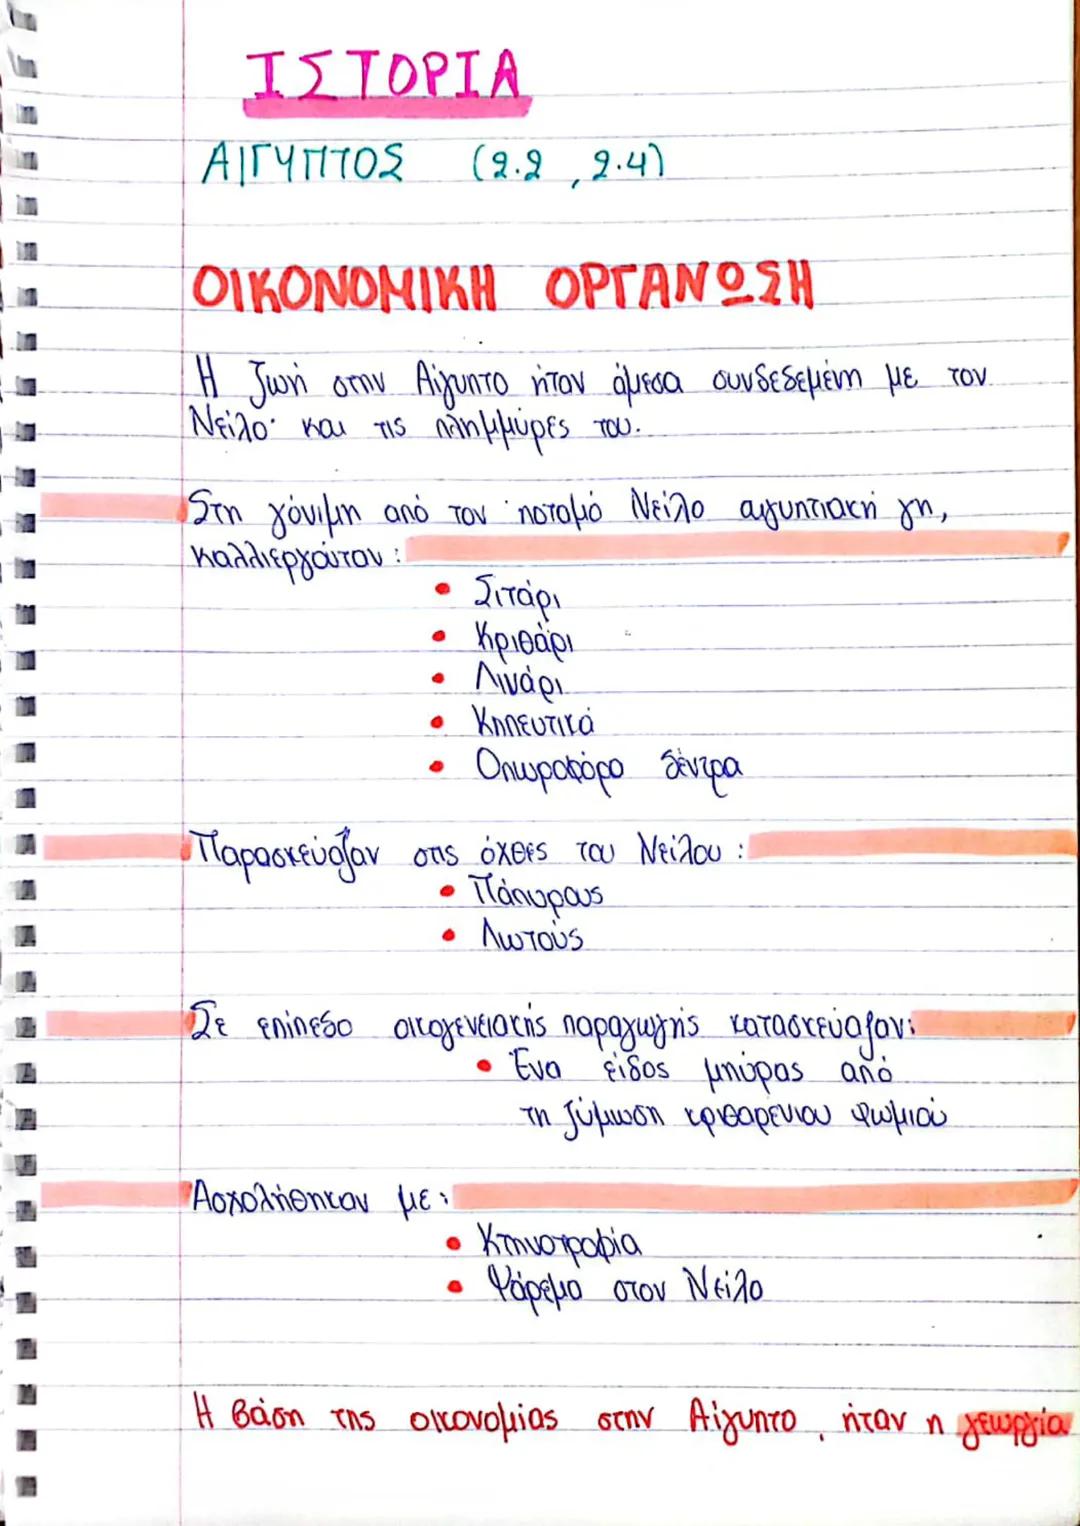 ΙΣΤΟΡΙΑ
ΑΙΓΥΠΤΟΣ (2.2 , 2.4)
ΟΙΚΟΝΟΜΙΚΗ ΟΡΓΑΝΩΣΗ
Η ζωή στην Αίγυπτο ήταν άμεσα συνδεδεμένη με τον
Νείλο και τις πλημμύρες του.
Στη γόνιμη από τον ποταμό Νείλο αιγυπτιακή γη,
καλλιεργούταν :
• Σιτάρι
• Κριθάρι
• Λινάρι
• Κηπευτικά
• Οπωροφόρο δέντρα
Παρασκεύαζαν στις όχθες του Νείλου :
• Πάπυρους
• Λωτούς
Σε επίπεδο οικογενειακής παραγωγής κατασκεύαζαν:
• Ένα είδος μπύρας από
τη ζύμωση κριθαρένιου ψωμιού
Ασχολήθηκαν με :
• Κτηνοτροφία
• Ψάρεμα στον Νείλο
Η βάση της οικονομίας στην Αίγυπτο , ήταν η γεωργία